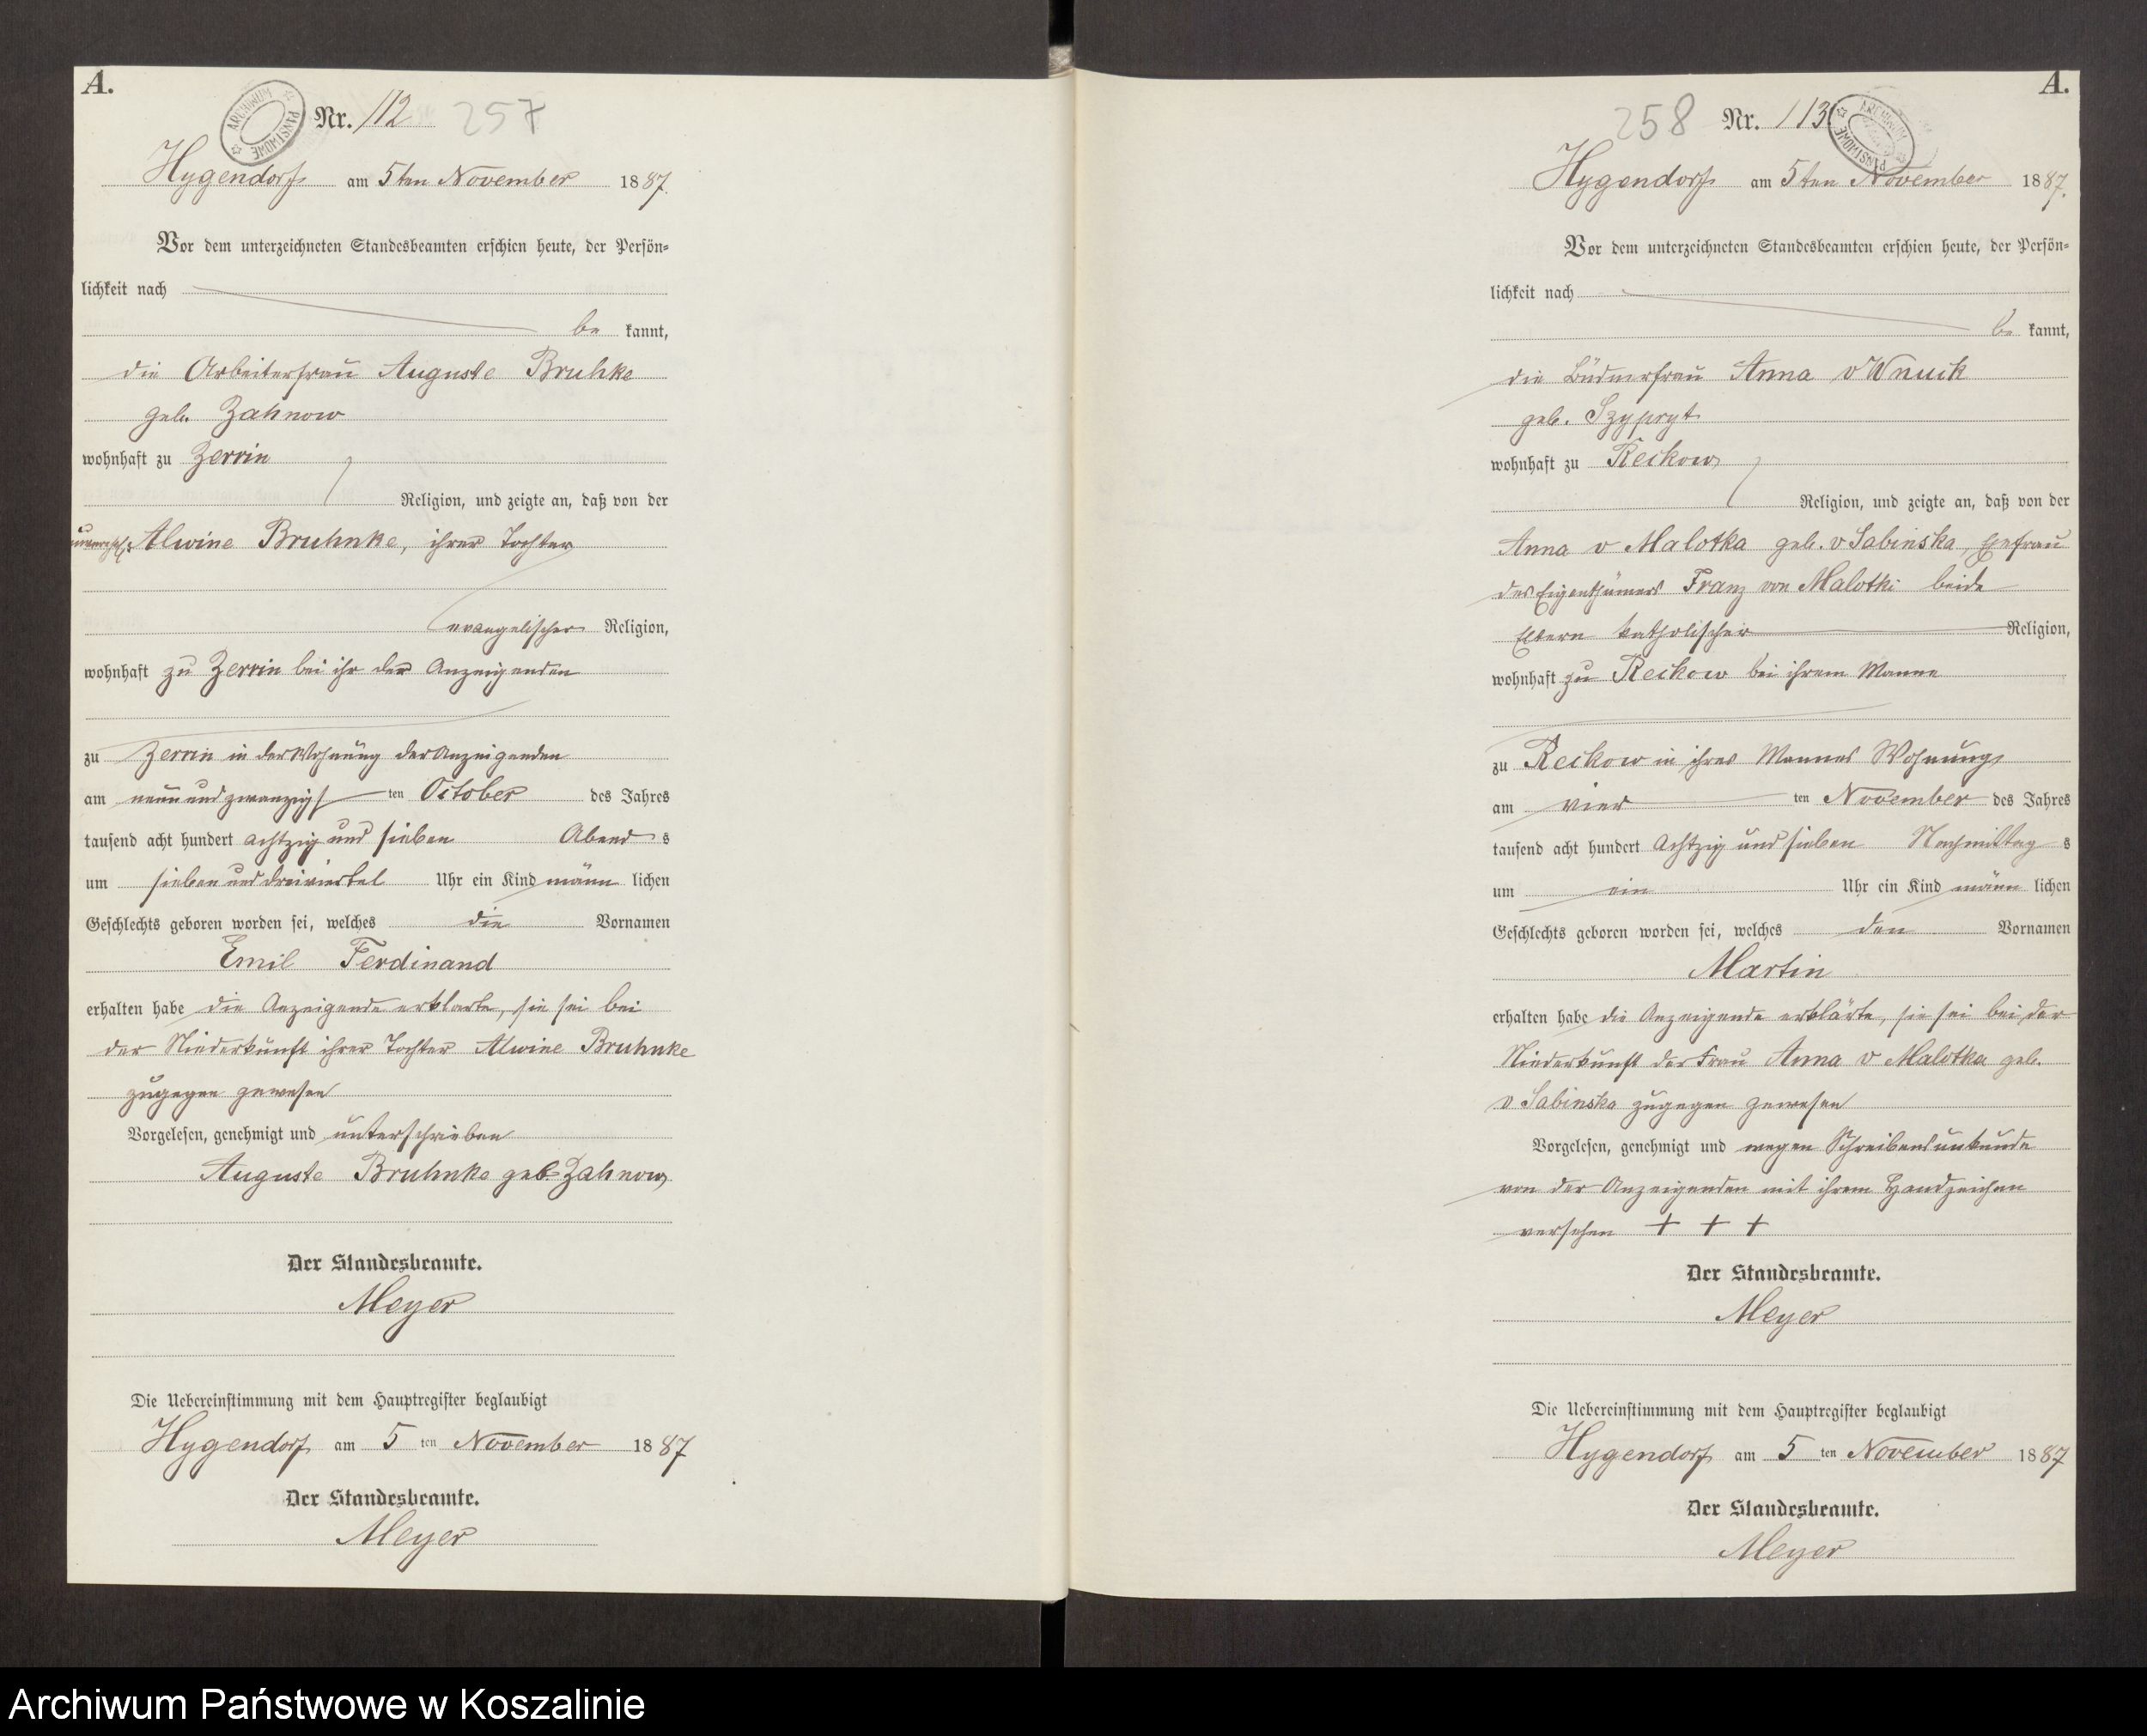 A.
ARCHIWUM PAŃSTWOWE
Nr. 112 257
Hygendorf am 5ten November 1887.
Vor dem unterzeichneten Standesbeamten erschien heute, der Persön-
lichkeit nach
be kannt,
die Arbeiterfrau Auguste Bruhke
geb. Zahnow
wohnhaft zu Zerrin
Religion, und zeigte an, daß von der
unverehel. Alwine Bruhnke, ihrer Tochter
evangelischer Religion,
wohnhaft zu Zerrin bei ihr der Anzeigenden
zu Zerrin in der Wohnung der Anzeigenden
am neun und zwanzigs ten October des Jahres
tausend acht hundert achtzig und sieben Abend s
um sieben und dreiviertel Uhr ein Kind männ lichen
Geschlechts geboren worden sei, welches die Vornamen
Emil Ferdinand
erhalten habe die Anzeigende erklarte, sie sei bei
der Niederkunft ihrer Tochter Alwine Bruhnke
zugegen gewesen
Vorgelesen, genehmigt und unterschrieben
Auguste Bruhnke geb Zahnow
Der Standesbeamte.
Meyer
Die Uebereinstimmung mit dem Hauptregister beglaubigt
Hygendorf am 5 ten November 1887
Der Standesbeamte.
Meyer
A.
258 Nr. 113.
ARCHIWUM PAŃSTWOWE
Hygendorf am 5ten November 1887.
Vor dem unterzeichneten Standesbeamten erschien heute, der Persön-
lichkeit nach
be kannt,
die Büdnerfrau Anna v Wnuck
geb. Szypryt
wohnhaft zu Reckow
Religion, und zeigte an, daß von der
Anna v Malotka geb. v Sabinska, Ehefrau
des Eigenthümers Franz von Malotki beide
Eltern katholischer Religion,
wohnhaft zu Reckow bei ihrem Manne
zu Reckow in ihres Mannes Wohnung
am vier ten November des Jahres
tausend acht hundert Achtzig und sieben Nachmittag s
um ein Uhr ein Kind männ lichen
Geschlechts geboren worden sei, welches den Vornamen
Martin
erhalten habe die Anzeigende erklärte, sie sei bei der
Niederkunft der Frau Anna v Malotka geb.
v Sabinska zugegen gewesen
Vorgelesen, genehmigt und wegen Schreibensunkunde
von der Anzeigenden mit ihrem Handzeichen
versehen + + +
Der Standesbeamte.
Meyer
Die Uebereinstimmung mit dem Hauptregister beglaubigt
Hygendorf am 5 ten November 1887
Der Standesbeamte.
Meyer
Archiwum Państwowe w Koszalinie